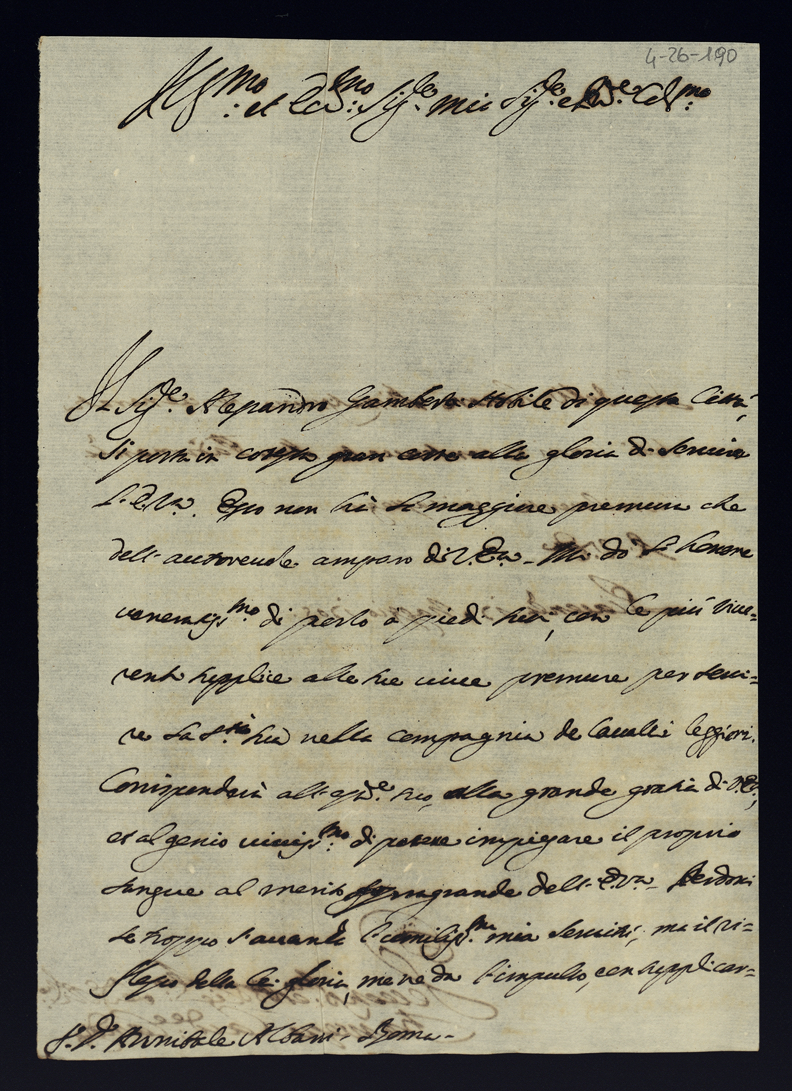 4-26-190
Ill:mo et Ecc:mo Sig:re mio Sig:re e P.ne Col:mo
Il Sig:re Alessandro Gamberta Nobile di questa Città,
si porta in cotesta gran corte alla gloria di servire
l'E.Va. Esso non hà la maggiore premura che
dell'autorevole amparo di V.Ea. Mi do l'honore
veneratiss:mo di porlo a piedi suoi, con le più rive=
renti suppliche alle sue vive premure per servi=
re la S.tà sua nella compagnia de Cavalli leggieri.
Corrisponderà all' suo, alla grande gratia di V.Ea,
et al genio viviss:mo di potere impiegare il proprio
sangue al merito sopragrande dell'E.Va. Perdoni
se troppo s'avanti l'umiliss:ma mia servitù, ma il ri=
flesso della Lei gloria, me ne da l'impulso, con supplicar=
S.r D. Annibale Albani. Roma.